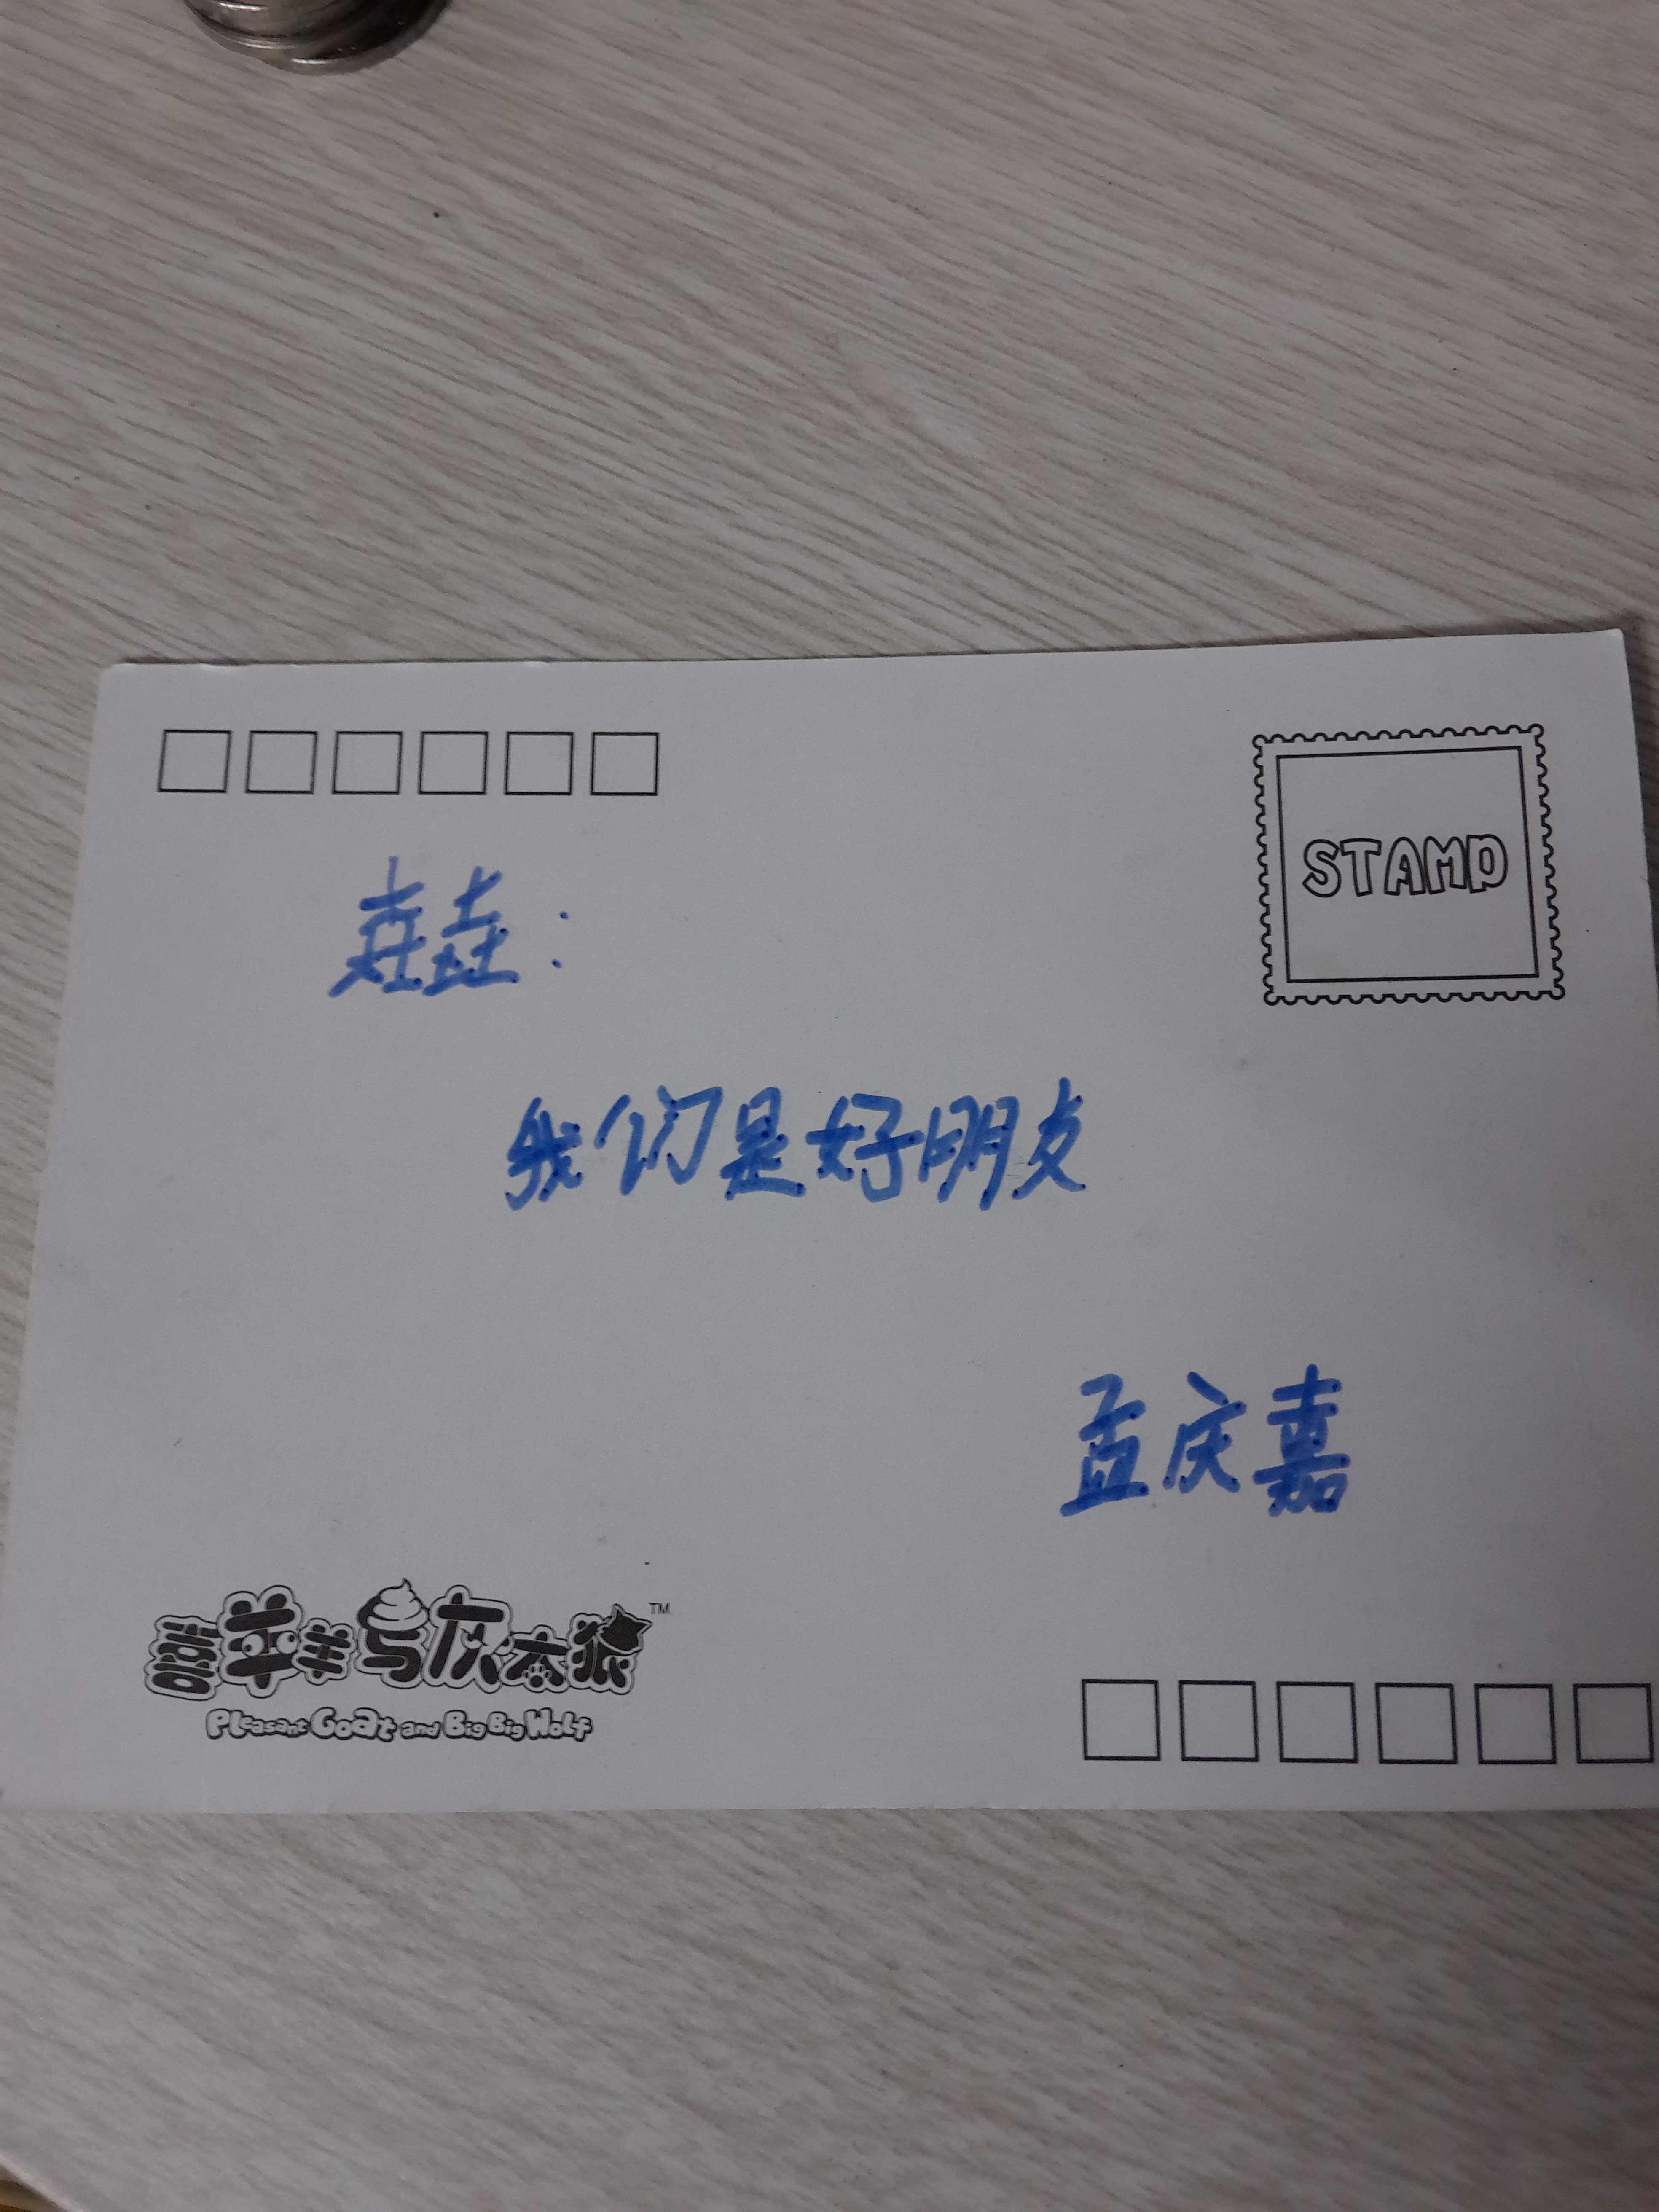 STAMP
我们是好朋友
孟庆嘉
喜羊羊与灰太狼 TM
Pleasant Goat and Big Big Wolf